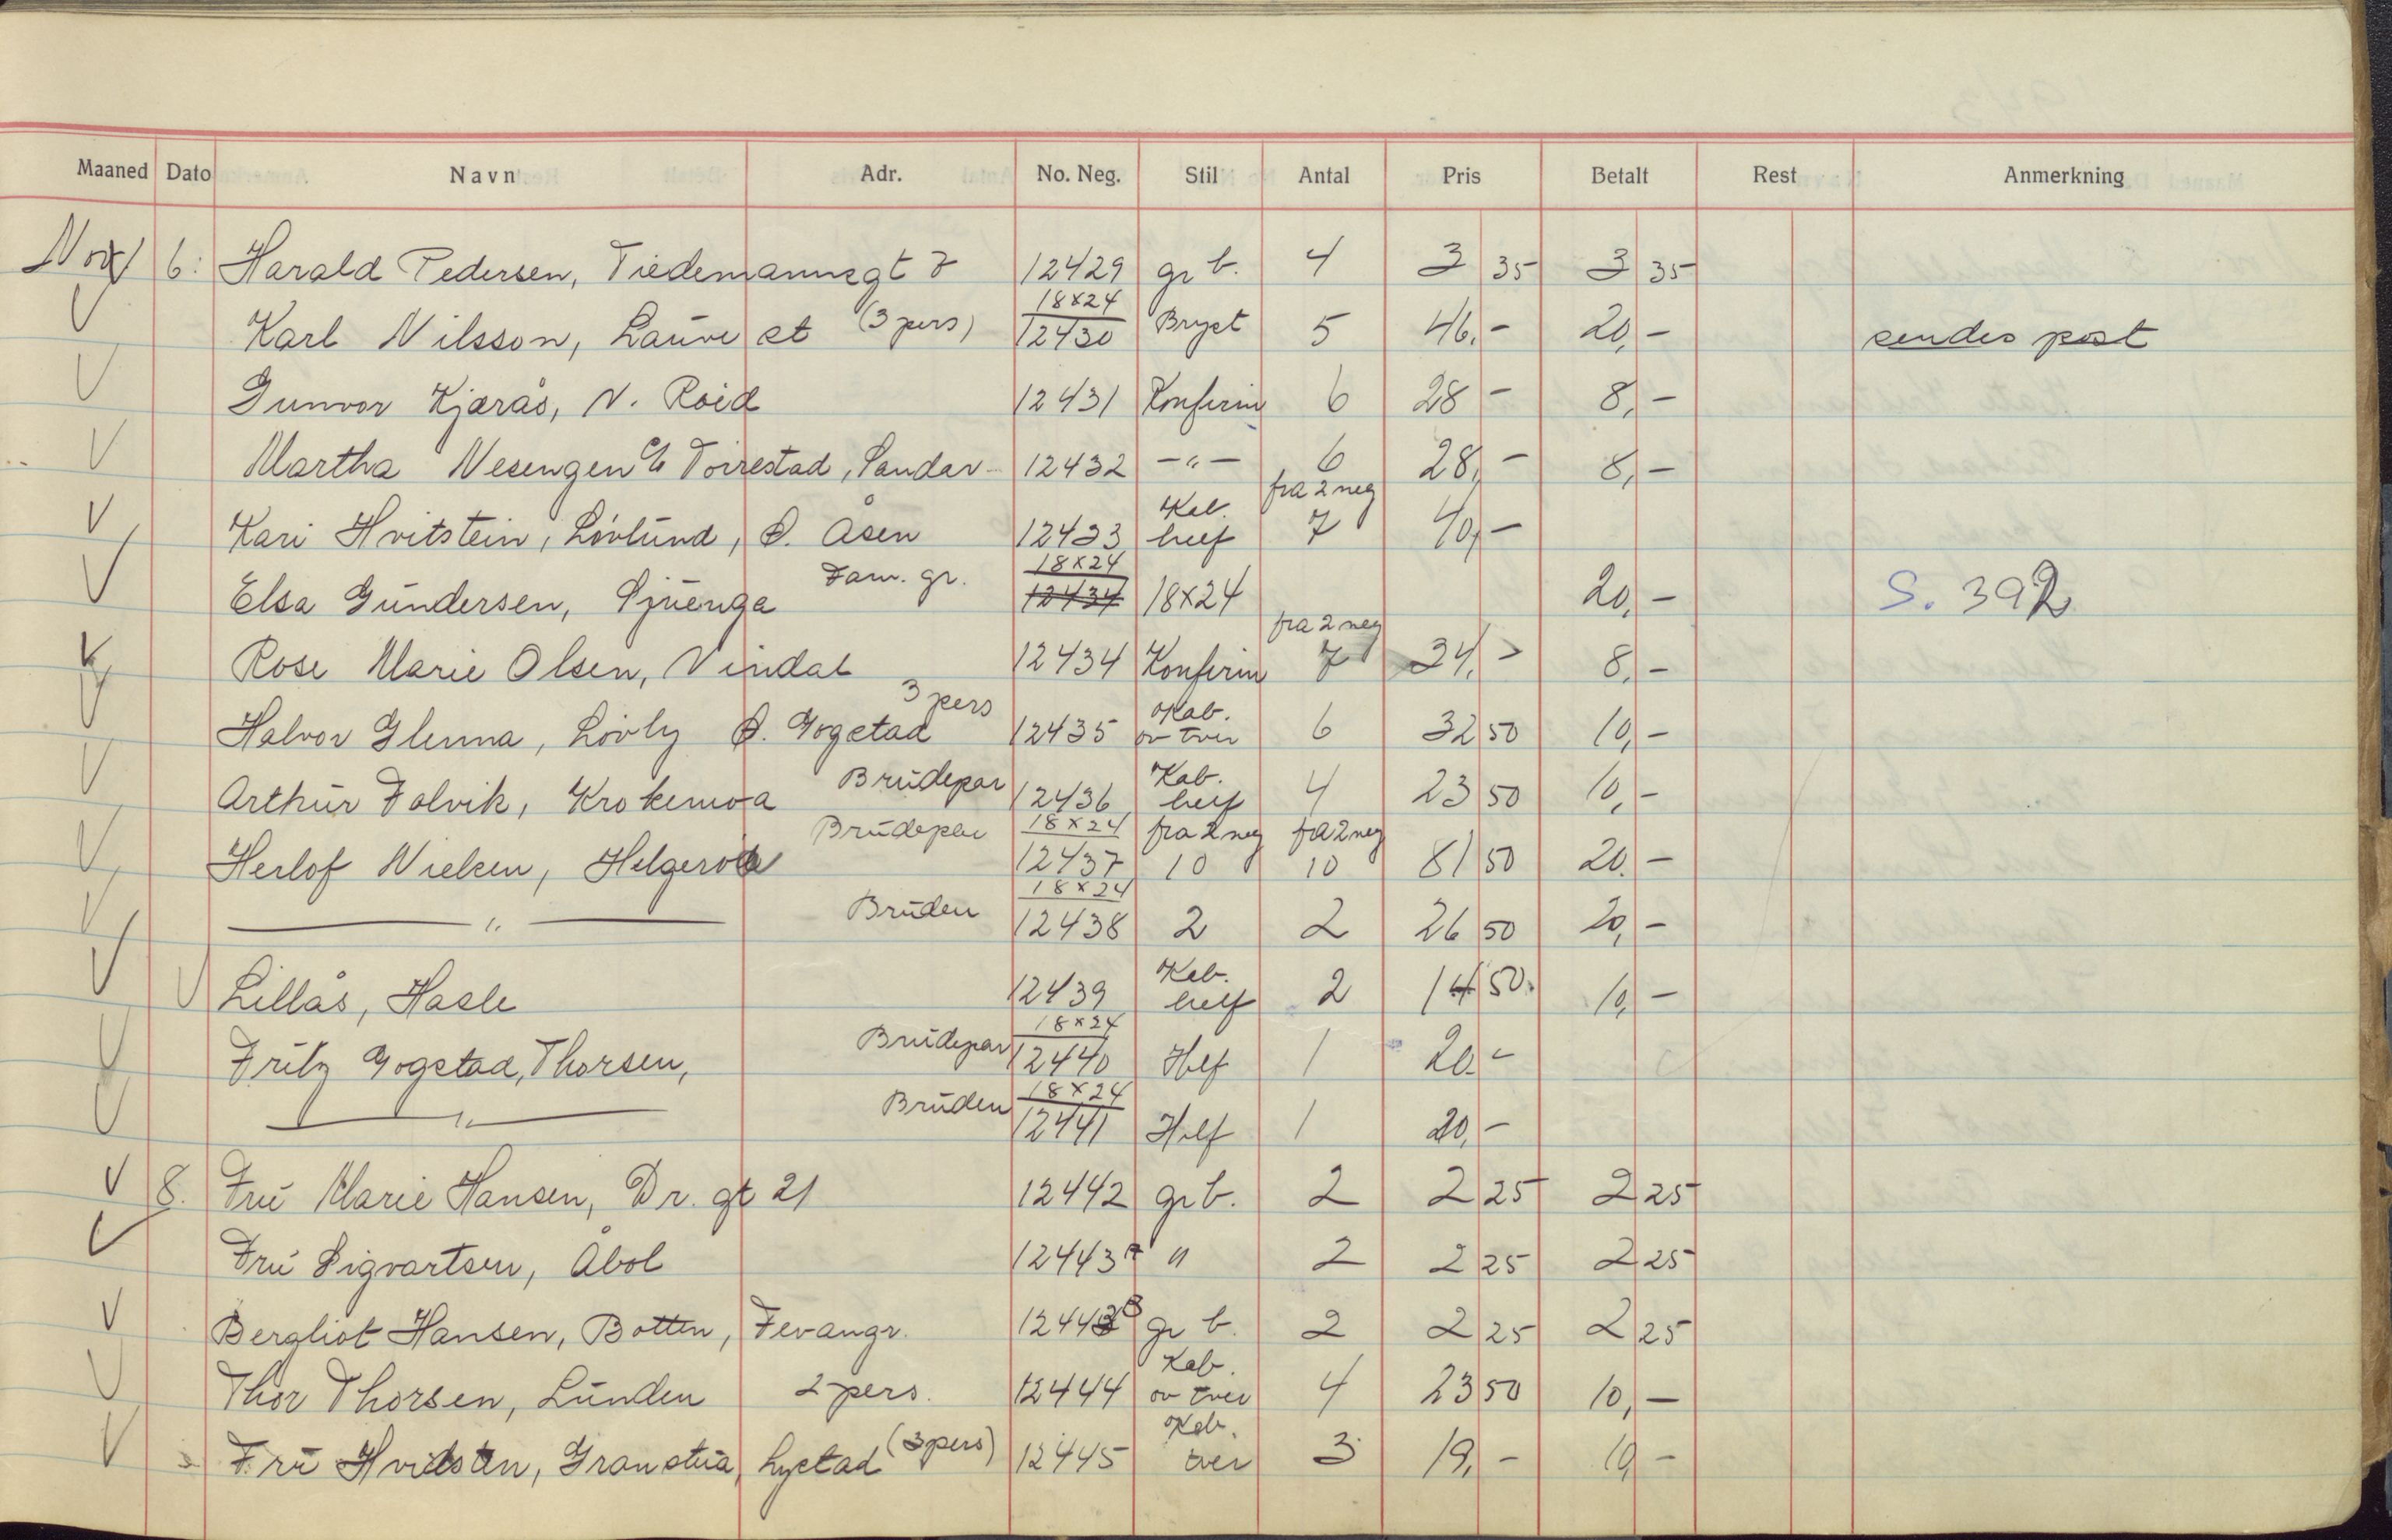 Maaned Dato Navn Adr. No. Neg. Stil Antal Pris Betalt Rest Anmerkning
Nov 6. Harald Pedersen, Tiedemannsgt 7 12429 gr b. 4 3 35 3 35
Karl Nilsson, Lauve st (3 pers) 18x24 12430 Bryst 5 46,- 20,- sendes post
Gunvor Kjærås, N. Roid 12431 Konfirm 6 28 - 8,-
Martha Nesengen c/o Torrestad, Sandar 12432 -"- 6 28,- 8,-
Kari Hvitstein, Lövlund, Ö. Åsen 12433 Kab. helf fra 2 neg 7 40,-
Elsa Gundersen, Sjuenga Fam. gr. 18x24 12434 18x24 20,- S. 392
Rose Marie Olsen, Vindal 12434 Konfirm fra 2 neg 7 34,- 8,-
Halvor Glenna, Lövly Ö. Gogstad 3 pers 12435 Kab. ov tver 6 32 50 10,-
Arthur Folvik, Krokemoa Brudepar 12436 Kab. helf 4 23 50 10,-
Herlof Nielsen, Helgeroa Brudepar 18x24 12437 fra 2 neg 10 fra 2 neg 10 81 50 20.-
-"- Brüden 18x24 12438 2 2 26 50 20,-
Lillås, Hasle 12439 Kab. helf 2 14 50. 10,-
Fritz Gogstad, Thorsen, Brudepar 18x24 12440 Helf 1 20.-
-"- Brüden 18x24 12441 Helf 1 20,-
8. Frü Marie Hansen, Dr. gt 21 12442 gr b. 2 2 25 2 25
Frü Sigvartsen, Åbol 12443 a " 2 2 25 2 25
Bergliot Hansen, Botten, Fevangr. 12443 B gr b. 2 2 25 2 25
Thor Thorsen, Lünden 2 pers. 12444 Kab. ov tver 4 23 50 10,-
Frü Hvidsten, Granstua, Lystad (3 pers) 12445 Kab. tver 3 19,- 19,-